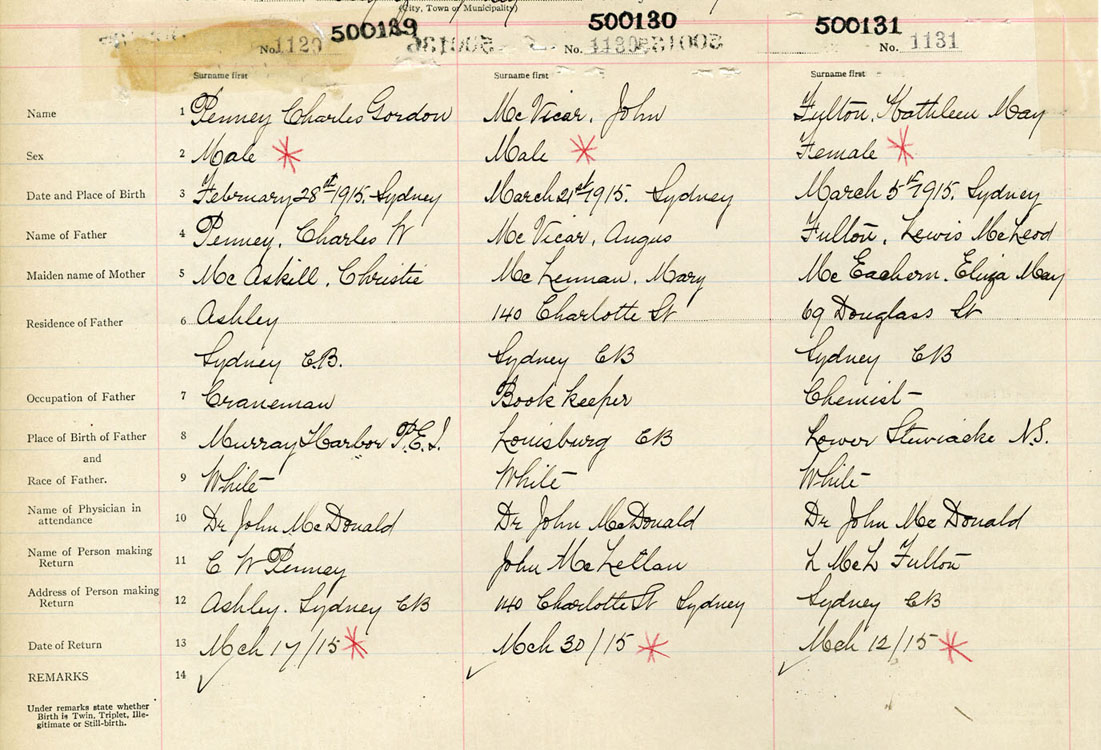 (City, Town or Municipality)
500129 500130 500131
No. 1129 No. 1130 No. 1131
Surname first Surname first Surname first
Name 1 Penney Charles Gordon Mc Vicar, John Fulton, Kathleen May
Sex 2 Male Male Female
Date and Place of Birth 3 February 28st 1915, Sydney March 21st 1915. Sydney March 5th 1915, Sydney
Name of Father 4 Penney, Charles W Mc Vicar, Angus Fulton, Lewis McLeod
Maiden name of Mother 5 Mc Askill, Christie Mc Lennan, Mary Mc Eachern, Eliza May
Residence of Father 6 Ashley 140 Charlotte St 69 Douglass St
Sydney C.B. Sydney CB Sydney CB
Occupation of Father 7 Craneman Book keeper Chemist
Place of Birth of Father 8 Murray Harbor P.E.I. Louisburg CB Lower Stewiacke N.S.
and
Race of Father. 9 White White White
Name of Physician in attendance 10 Dr John McDonald Dr John McDonald Dr John Mc Donald
Name of Person making Return 11 C W Penney John McLellan L McL Fulton
Address of Person making Return 12 Ashley. Sydney CB 140 Charlotte St Sydney Sydney CB
Date of Return 13 Mch 17/15 Mch 30/15 Mch 12/15
REMARKS 14
Under remarks state whether
Birth is Twin, Triplet, Ille-
gitimate or Still-birth.